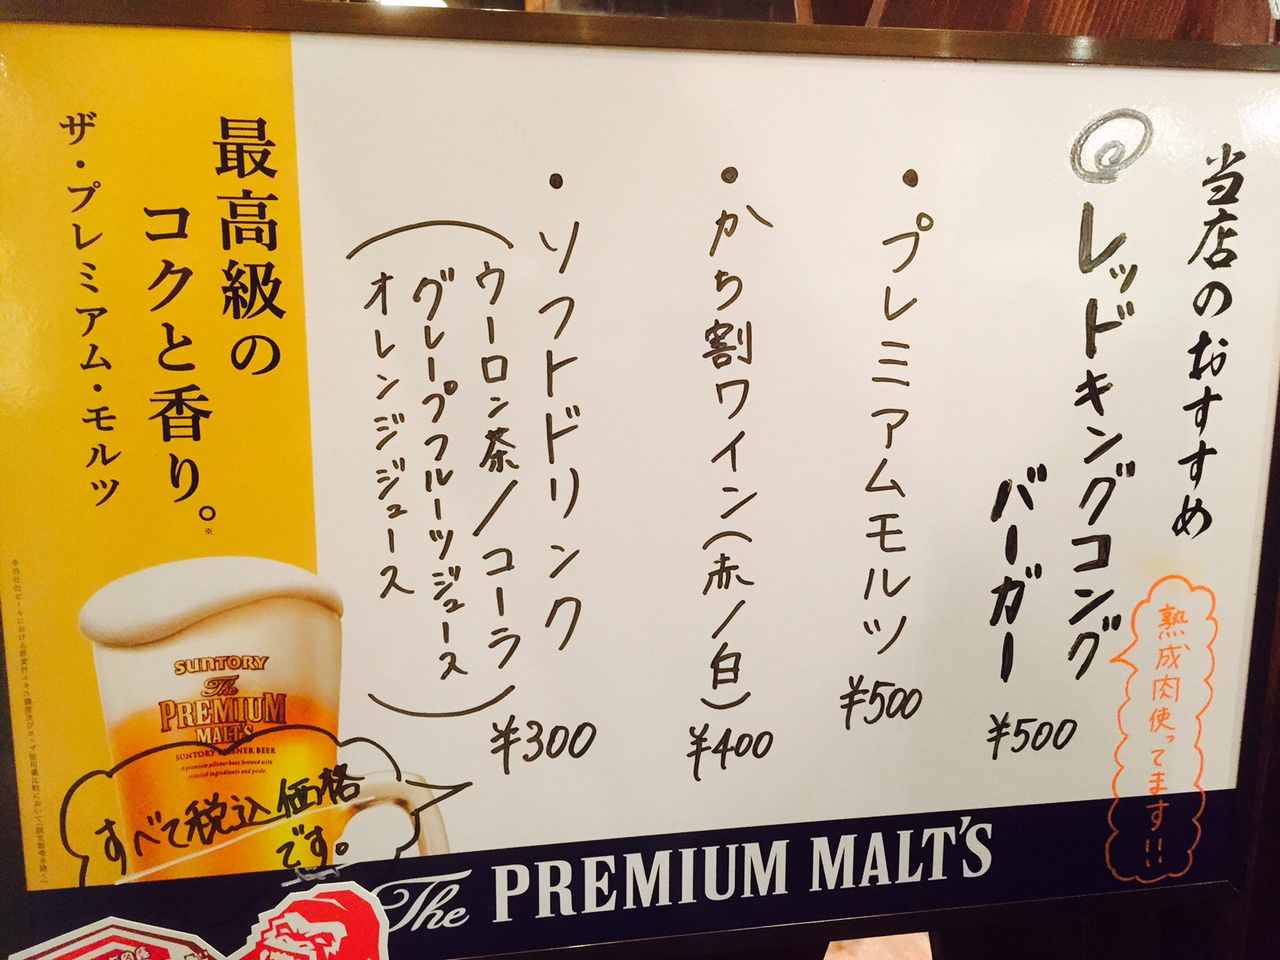 当店のおすすめ
◎レッドキングコング
バーガー
¥500
熟成肉使ってます!!
・プレミアムモルツ
¥500
・かち割ワイン(赤/白)
¥400
・ソフトドリンク
(ウーロン茶/コーラ
グレープフルーツジュース
オレンジジュース)
¥300
最高級の
コクと香り。※
ザ・プレミアム・モルツ
SUNTORY
The
PREMIUM
MALT'S
SUNTORY PILSNER BEER
A premium pilsner beer, brewed with
selected ingredients and pride.
すべて税込価格
です。
The PREMIUM MALT'S